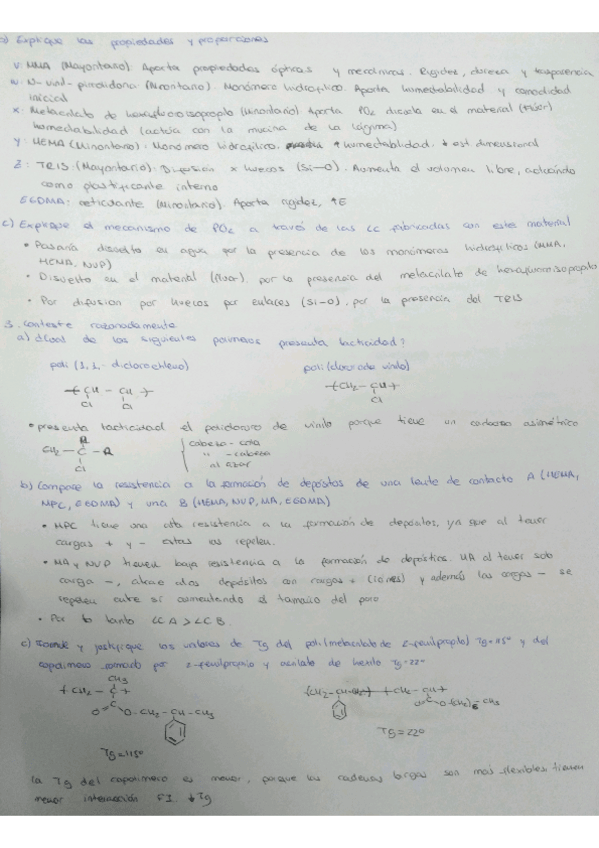 a) Explique las propiedades y proporciones
V: MMA (Mayoritario). Aporta propiedades ópticas y mecánicas. Rigidez, dureza y trasparencia
W: N-vinil-pirrolidona (Minoritario). Monómero hidrofílico. Aporta humectabilidad y comodidad
inicial
X: Metacrilato de hexafluoroisopropilo (Minoritario). Aporta PO2 disuelto en el material (flúor)
humectabilidad (actúa con la mucina de la lágrima)
Y: HEMA (Minoritario). Monómero hidrofílico. ↑ humectabilidad, ↓ est dimensional
Z: TRIS (Mayoritario). Difusión x huecos (Si-O). Aumenta el volumen libre, actuando
como plastificante interno
EGDMA: reticulante (Minoritario). Aporta rigidez, ↑E
c) Explique el mecanismo de PO2 a través de las LC fabricadas con este material
• Pasaría disuelto en agua por la presencia de los monómeros hidrofílicos (MMA,
HEMA, NVP)
• Disuelto en el material (fluor). por la presencia del metacrilato de hexafluoroisopropilo
• Por difusión por huecos por enlaces (Si-O). por la presencia del TRIS
3. Conteste razonadamente
a) ¿Cuál de los siguientes polímeros presenta tacticidad?
poli ( dicloroetileno) poli (cloruro de vinilo)
CH - CH CH2 - CH
Cl Cl Cl
• presenta tacticidad el policloruro de vinilo porque tiene un carbono asimétrico
R
CH2 - C - R
Cl
cabeza - cola
" - cabeza
al azar
b) Compare la resistencia a la formación de depósitos de una lente de contacto A (HEMA,
MPC, EGDMA) y una B (HEMA, NVP, MA, EGDMA)
• MPC tiene una alta resistencia a la formación de depósitos, ya que al tener
cargas + y - estas se repelen.
• MA y NVP tienen baja resistencia a la formación de depósitos. MA al tener solo
carga -, atrae a los depósitos con cargas + (iones) y además las cargas - se
repelen entre sí aumentando el tamaño del poro
• Por lo tanto LC A > LC B
c) y justifique los valores de Tg del poli (metacrilato de 2-fenilpropilo) Tg=115° y del
copolímero formado por 2-fenilpropilo y acrilato de hexilo Tg=22°
CH3
CH2 - C
C
O O-CH2-CH-CH3
Tg=115°
CH2 - CH
Tg=22°
la Tg del copolímero es menor, porque las cadenas largas son más flexibles, tienen
menor interacción F.I. ↓Tg